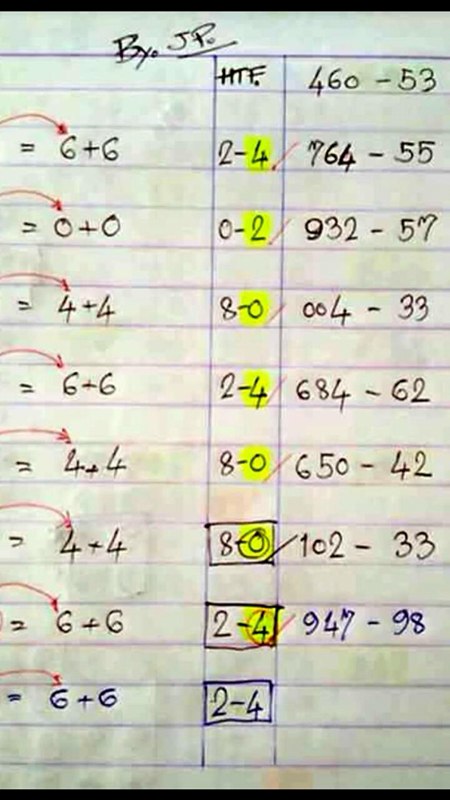 By. J.P.
HTF. 460 - 53
= 6+6 2-4 764 - 55
= 0+0 0-2 932 - 57
= 4+4 8-0 004 - 33
= 6+6 2-4 684 - 62
= 4+4 8-0 650 - 42
= 4+4 8-0 102 - 33
= 6+6 2-4 947 - 98
= 6+6 2-4